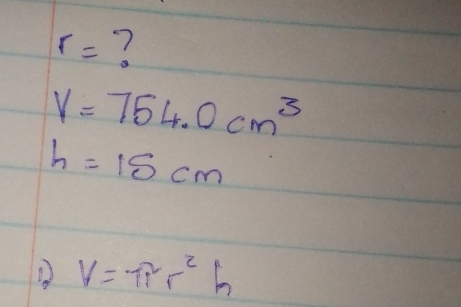 r = ?
V = 754.0 cm³
h = 15 cm
1) V = πr² h